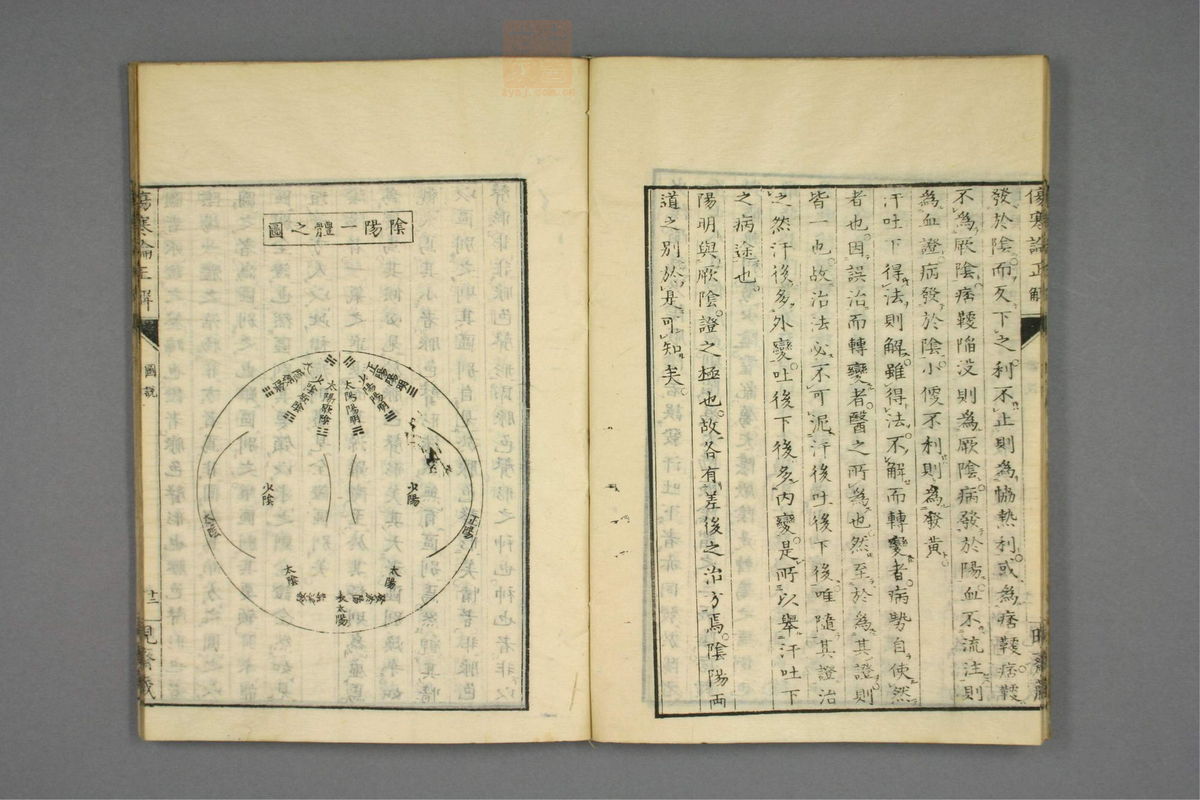 傷寒論正解
發於陰。而反下之。利不止。則為恊熱利。或為痞鞕。痞鞕
不為厥陰。痞鞕陷没則為厥陰。病發於陽。血不流注則
為血證。病發於陰。小便不利則為發黃。
汗吐下得法則解。雖得法。不解而轉變者。病勢自使然
者也。因誤治而轉變者。醫之所為也。然至於為其證。則
皆一也。故治法必不可泥汗後吐後下後。唯隨其證治
之。然汗後多外變。吐後下後多内變。是所以舉汗吐下
之病途也。
陽明與厥陰。證之極也。故各有差後之治方焉。陰陽両
道之別。於是可知矣。
陰陽一體之圖
正陽陽明
太陽陽明
太陽厥陰
少陽
正陽
少陰
太陰
太陽
太陽
傷寒論正解
圖說
十二